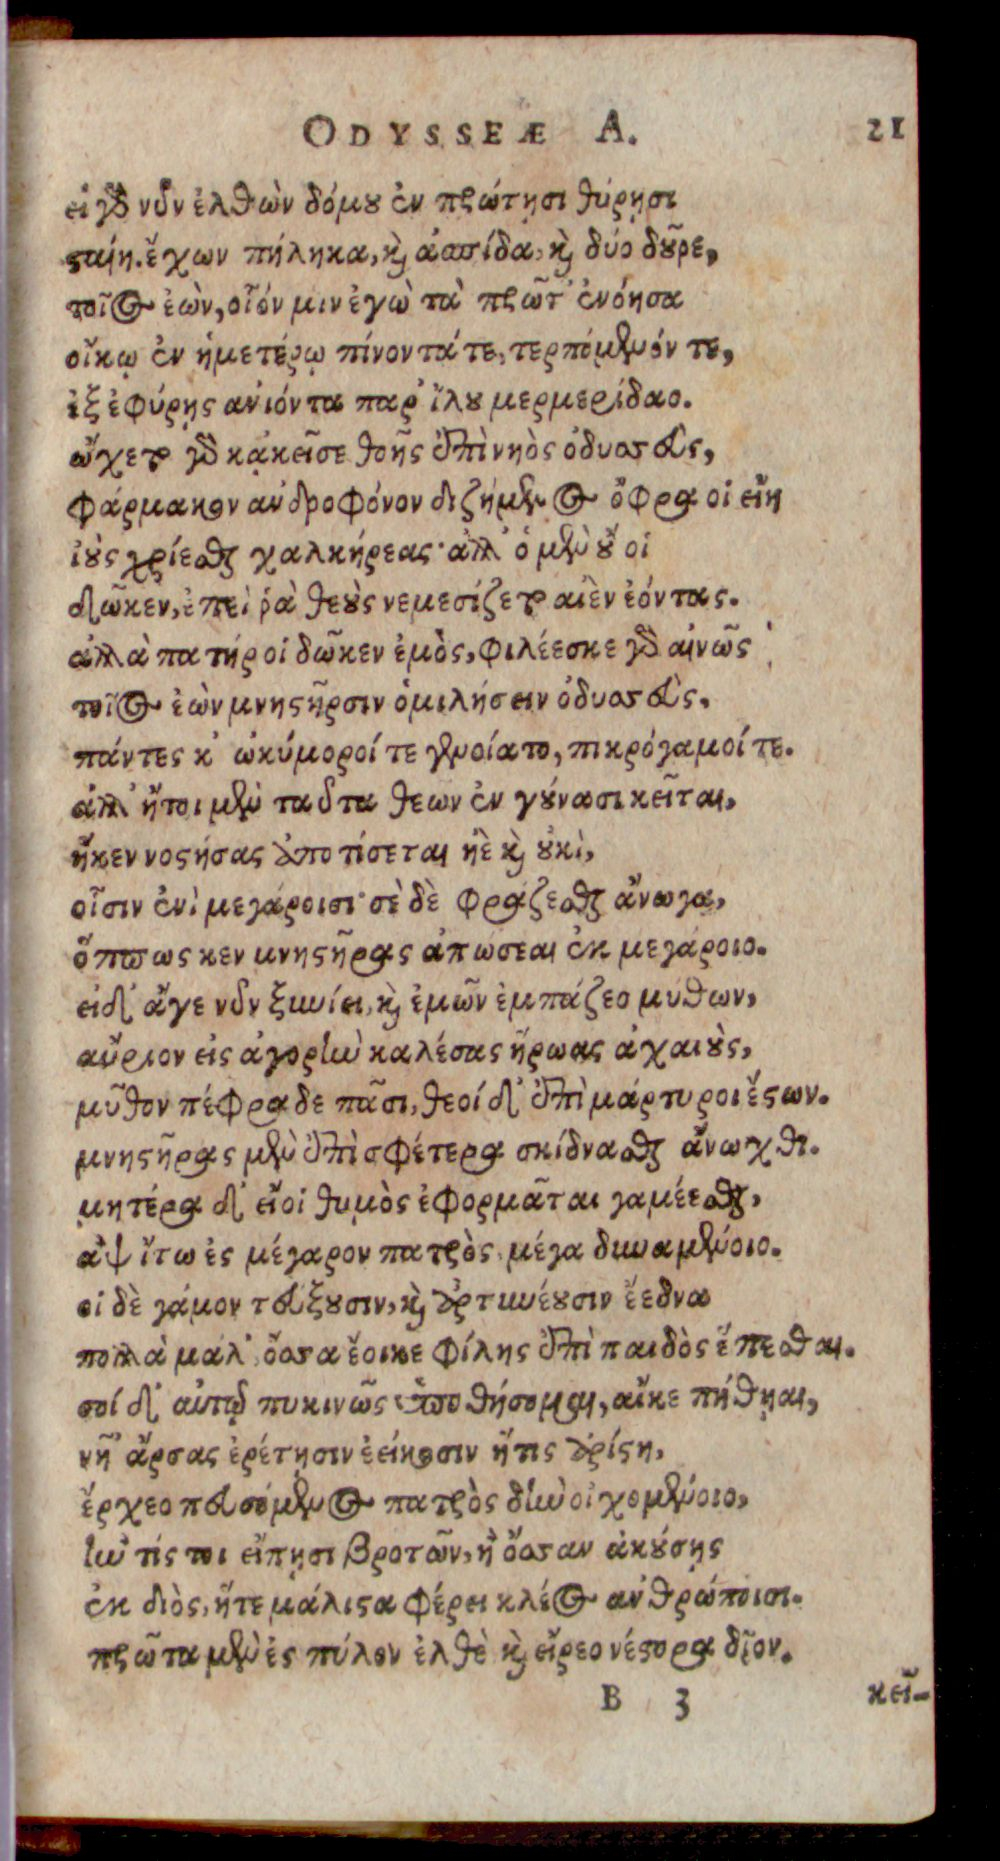 ODYSSEÆ A. 21
εἰ γὰρ νῦν ἐλθὼν δόμου ἐν πρώτῃσι θύρῃσι
σταίη. ἔχων πήληκα, καὶ ἀσπίδα, καὶ δύο δοῦρε,
τοῖος ἐὼν, οἷόν μιν ἐγὼ τὰ πρῶτ' ἐνόησα
οἴκῳ ἐν ἡμετέρῳ πίνοντά τε, τερπόμενόν τε,
ἐξ ἐφύρης ἀνιόντα παρ' ἴλου μερμερίδαο.
ᾤχετο γὰρ κᾀκεῖσε θοῆς ἐπὶ νηὸς ὀδυσσεὺς,
φάρμακον ἀνδροφόνον διζήμενος ὄφρα οἱ εἴη
ἰοὺς χρίεσθαι χαλκήρεας· ἀλλ' ὁ μὲν οὔ οἱ
δῶκεν, ἐπεί ῥα θεοὺς νεμεσίζετο αἰὲν ἐόντας.
ἀλλὰ πατήρ οἱ δῶκεν ἐμὸς, φιλέεσκε γὰρ αἰνῶς
τοῖος ἐὼν μνηστῆρσιν ὁμιλήσειν ὀδυσσεὺς.
πάντες κ' ὠκύμοροί τε γενοίατο, πικρόγαμοί τε.
ἀλλ' ἤτοι μὲν ταῦτα θεων ἐν γούνασι κεῖται,
ἤκεν νοστήσας ἀποτίσεται ἠὲ καὶ οὐκὶ,
οἷσιν ἐνὶ μεγάροισι· σὲ δὲ φράζεσθαι ἄνωγα,
ὅππως κεν μνηστῆρας ἀπώσεαι ἐκ μεγάροιο.
εἰ δ' ἄγε νῦν ξυνίει, καὶ ἐμῶν ἐμπάζεο μύθων,
αὔριον εἰς ἀγορὴν καλέσας ἥρωας ἀχαιοὺς,
μῦθον πέφραδε πᾶσι, θεοί δ' ἐπὶ μάρτυροι ἔστων.
μνηστῆρας μὲν ἐπὶ σφέτερα σκίδνασθαι ἄνωχθι.
μητέρα δ' εἴ οἱ θυμὸς ἐφορμᾶται γαμέεσθαι,
ἂψ ἴτω ἐς μέγαρον πατρὸς μέγα δυναμένοιο.
οἱ δὲ γάμον τεύξουσιν, καὶ ἀρτυνέουσιν ἔεδνα
πολλὰ μάλ' ὅσσα ἔοικε φίλης ἐπὶ παιδὸς ἕπεσθαι.
σοί δ' αὐτῷ πυκινῶς ὑποθήσομαι, αἴκε πήθηαι,
νῆ' ἄρσας ἐρέτῃσιν ἐείκοσιν ἥτις ἀρίστη,
ἔρχεο πευσόμενος πατρὸς δὴν οἰχομένοιο,
ἤν τίς τοι εἴπῃσι βροτῶν, ἢ ὄσσαν ἀκούσῃς
ἐκ διὸς, ἥτε μάλιστα φέρει κλέος ἀνθρώποισι.
πρῶτα μὲν ἐς πύλον ἐλθὲ καὶ εἴρεο νέστορα δῖον.
B 3 κεῖ-